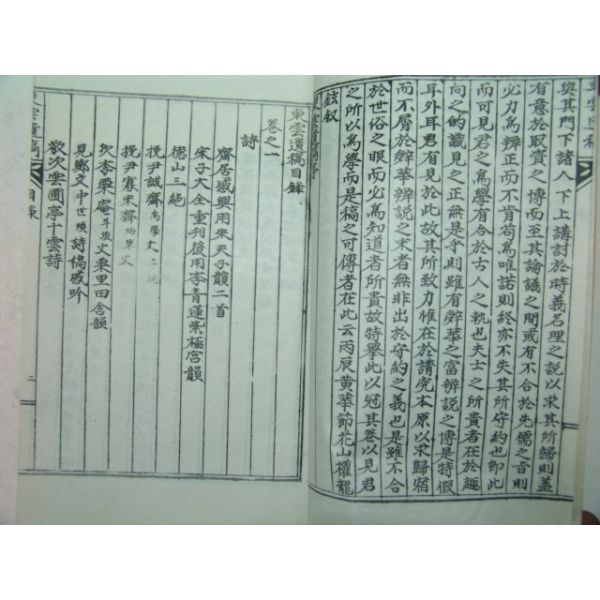 與其門下諸人下上講討於時義名理之說以求其所歸則蓋
有意於取資之博而至其論議之間或有不合於先儒之旨則
必力為辨正而不肯苟為唯諾則終亦不失其所守約也即此
而可見君之為學有合於古人之軌也夫士之所貴者在於趣
向之之識見之正無是乎則雖有辭華之富辨說之博是特假
耳外耳君有見於此故其所致力惟在於講究本原以求歸宿
而不屑於辭華辨說之末者無非出於守約之義也是雖不合
於世俗之眼而必為知道者所貴故特擧此以冠其卷以見君
之所以為學而是稿之可傳者在此云丙辰黃華節花山權龍
鉉叙
東雲遺稿目錄
卷之一
詩
齋居感興用朱夫子韻二首
宋子大全重刊後用李青蓮紫極宮韻
德山三絶
挽尹誠齋
挽尹賽朱齋
次李栗庵 栗里田舍韻
見鄭文中 詩稿感吟
敬次雲圃亭十雲詩
目錄
二